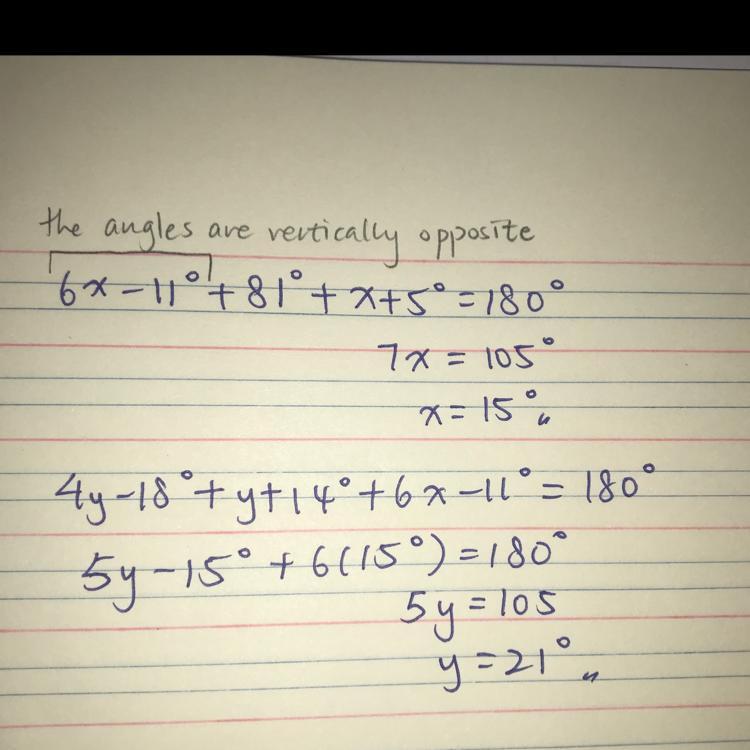 the angles are vertically opposite
6x-11°+81°+x+5°=180°
7x = 105°
x=15°„
4y-18°+y+14°+6x-11°=180°
5y-15°+6(15°)=180°
5y=105
y=21°„